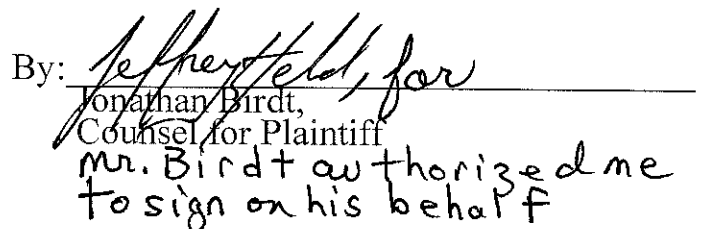 By: Jeffrey Held, for
Jonathan Birdt,
Counsel for Plaintiff
Mr. Birdt authorized me
to sign on his behalf